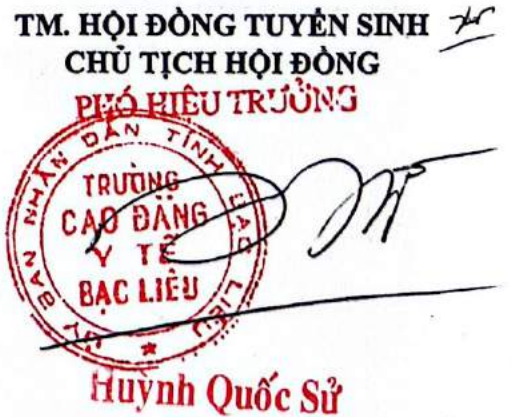 TM. HỘI ĐỒNG TUYỂN SINH
CHỦ TỊCH HỘI ĐỒNG
PHÓ HIỆU TRƯỞNG
ỦY BAN NHÂN DÂN TỈNH BẠC LIÊU
TRƯỜNG
CAO ĐẲNG
Y TẾ
BẠC LIÊU
Huỳnh Quốc Sử